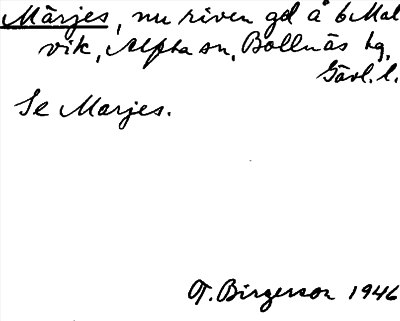 Märjes, nu riven gd å 6 Mal
vik, Alfta sn, Bollnäs tg,
Gävl. l.
Se Marjes.
T. Birgerson 1946